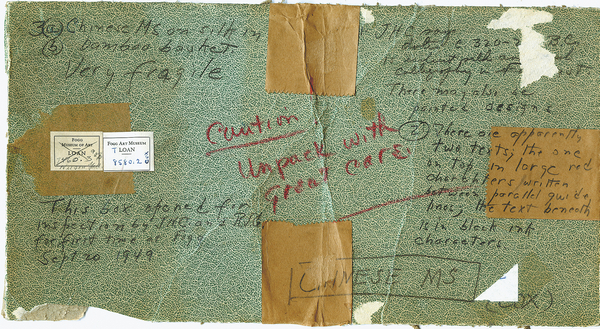 3(a) Chinese MS on silk in
(b) bamboo basket
Very fragile
FOGG
MUSEUM OF ART
LOAN
FOGG ART MUSEUM
T LOAN
8580.2
This box opened for
inspection by JHC and
for first time at Fogg
Sept 20 1949
Caution
Unpack with
great care.
JHC says
date c 320-2 B.C.
calligraphy in
There may also be
painted designs
(2) There are apparently
two texts, the one
on top in large red
characters written
between parallel guide
lines, the text beneath
is in black ink
characters
CHINESE MS
(COX)